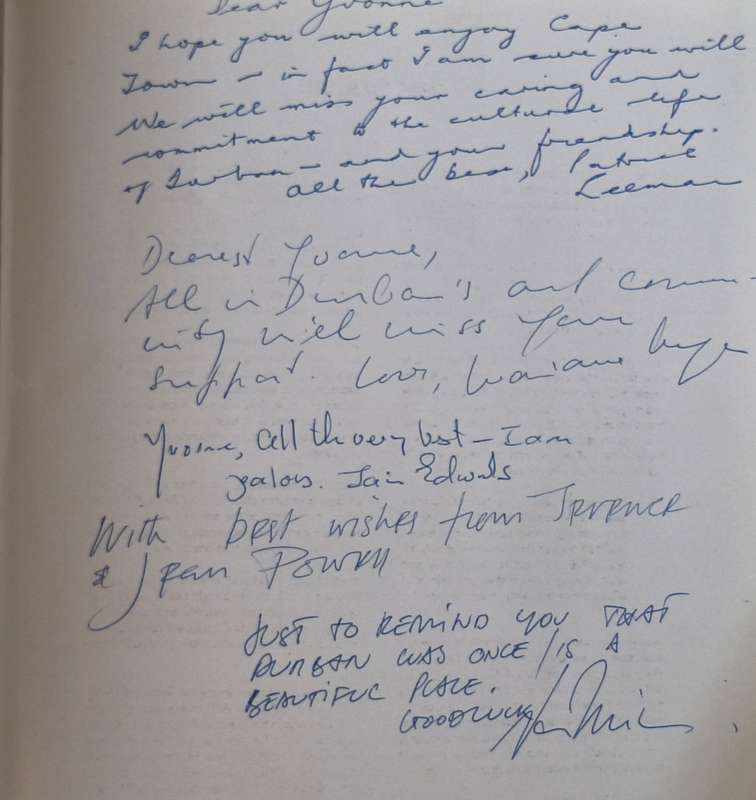 Dear Yvonne
I hope you will enjoy Cape
Town – in fact I am sure you will
We will miss your caring and
commitment to the cultural life
of Durban – and your friendship.
All the best, Patrick
Leeman
Dearest Yvonne,
All in Durban's art commu-
nity will miss your
support. Love,
Yvonne, all the very best – I am
jealous. Iain Edwards
With best wishes from Terence
& Jean Powell
JUST TO REMIND YOU THAT
DURBAN WAS ONCE / IS A
BEAUTIFUL PLACE.
GOODLUCK